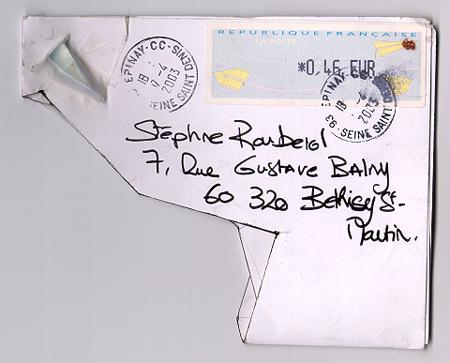 REPUBLIQUE FRANCAISE
LA POSTE
*0,46 EUR
EPINAY-CC-SINS DENIS
18
7-4
2003
93 SEINE SAINT
EPINAY
18
-4
2003
93 -SEINE SAINT
Stéphne
7, Rue Gustave Balny
60 320 Bethisy St-
Martin.